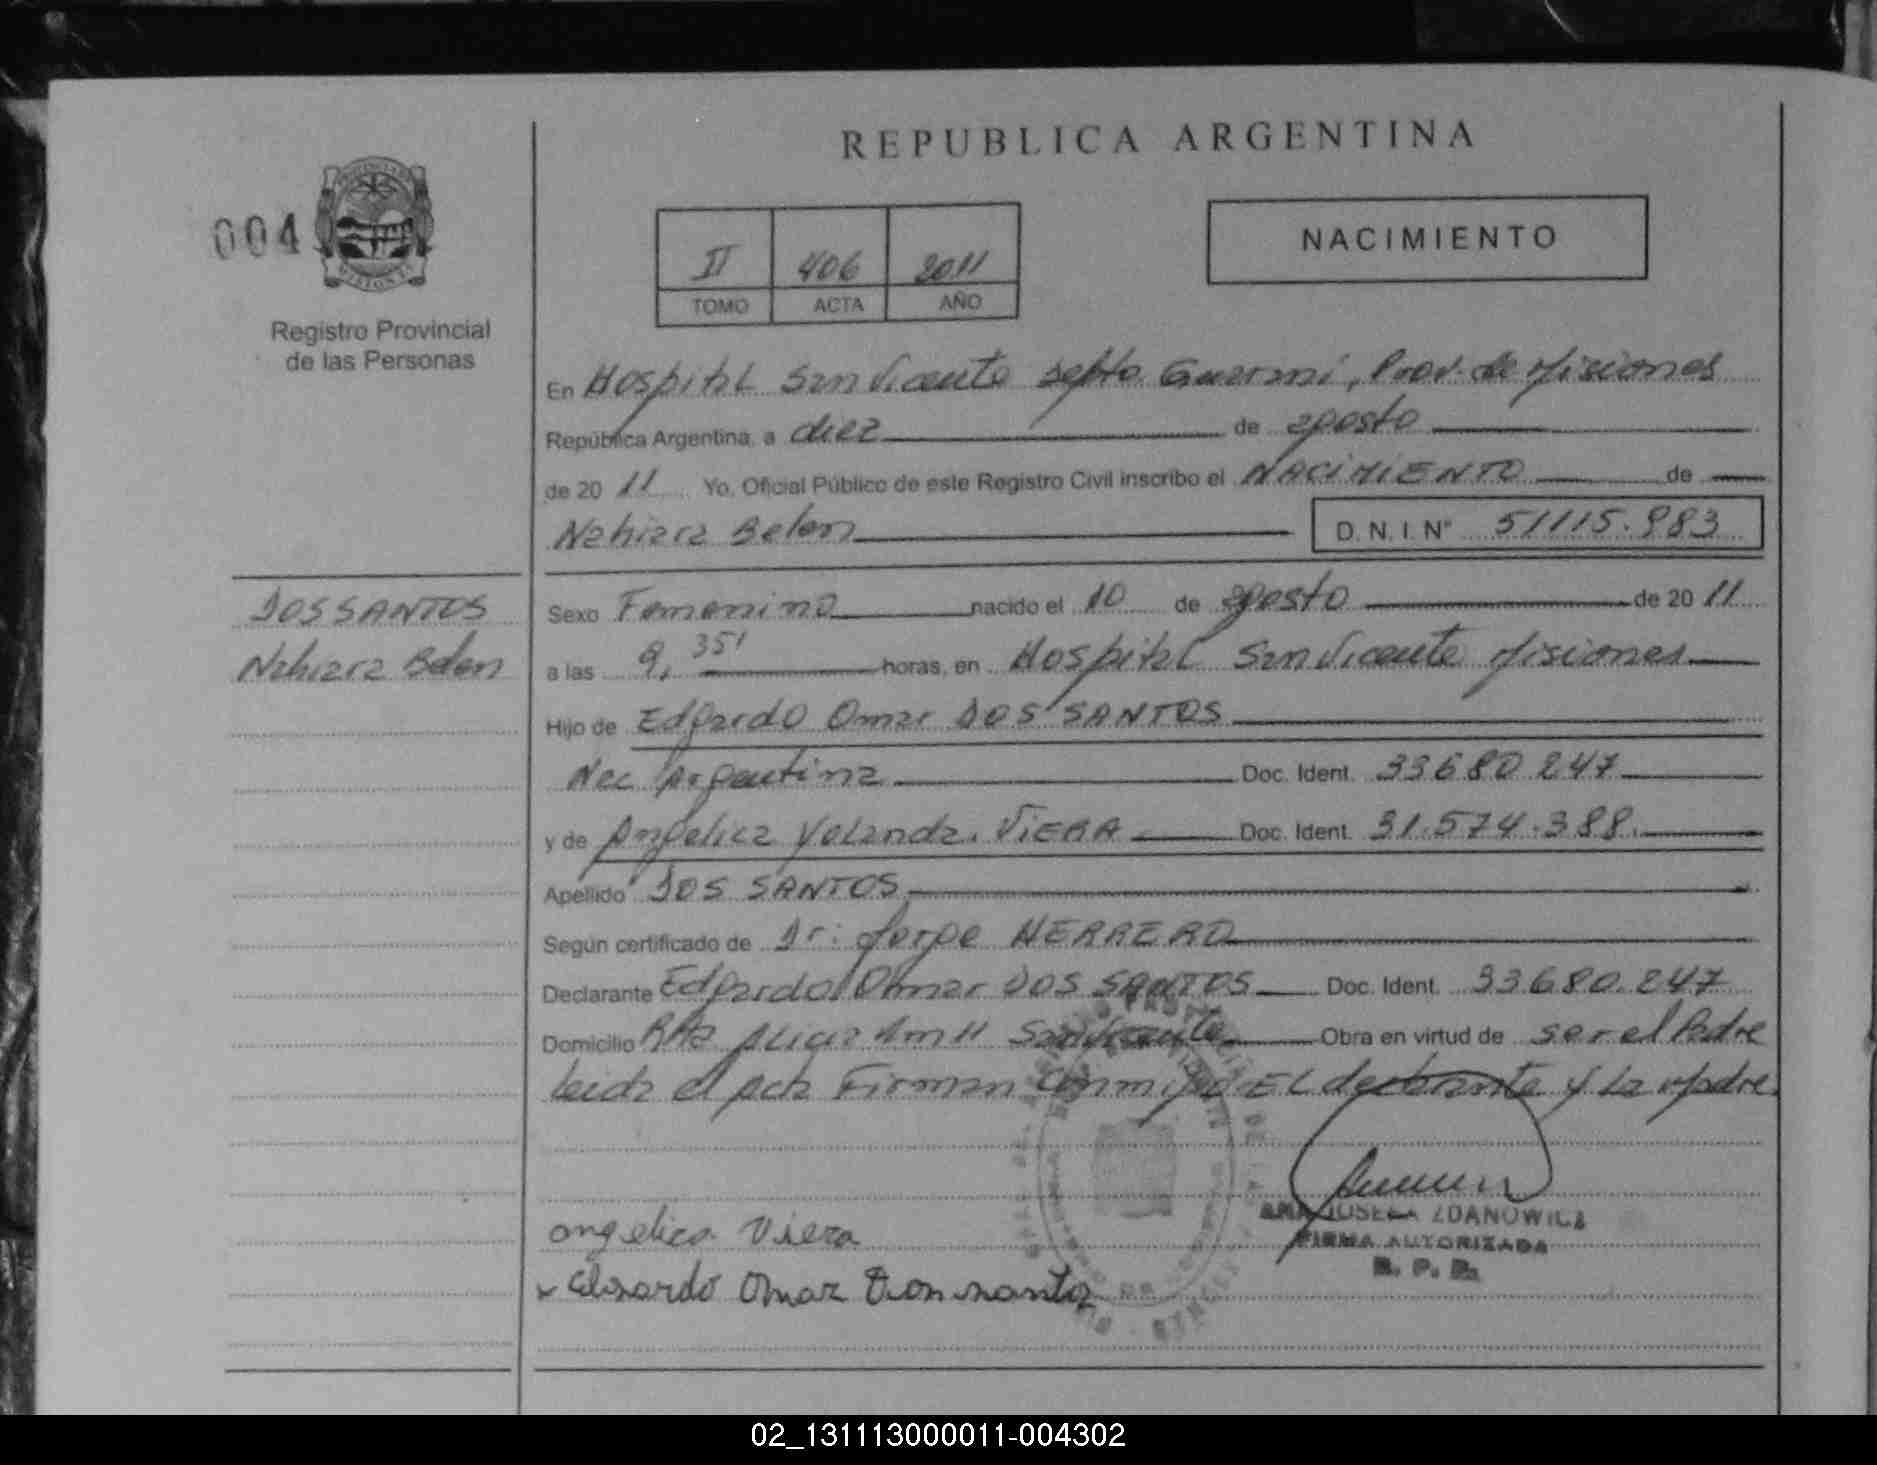 REPUBLICA ARGENTINA
004
II 406 2011
TOMO ACTA AÑO
NACIMIENTO
Registro Provincial
de las Personas
En Hospital San Vicente Depto Guarani, Prov. de Misiones
República Argentina, a diez de agosto
de 20 11 Yo, Oficial Público de este Registro Civil inscribo el NACIMIENTO de
Nahiara Belen D.N.I. N° 51115.983
DOS SANTOS
Nahiara Belen
Sexo Femenino nacido el 10 de agosto de 20 11
a las 9,35' horas, en Hospital San Vicente Misiones
Hijo de Edgardo Omar DOS SANTOS
Nac Argentina Doc. Ident. 33680247
y de Angelica Yolanda. VIERA Doc. Ident. 31.574.388.
Apellido DOS SANTOS
Según certificado de Dr: Jorge HERRERO
Declarante Edgardo Omar DOS SANTOS Doc. Ident. 33.680.247
Domicilio San Vicente Obra en virtud de ser el Padre
Leida el Acta Firman Conmigo EL declarante y La Madre
angelica Viera
x Edgardo Omar Dos santos
ANA JOSEFA ZDANOWICZ
FIRMA AUTORIZADA
R. P. P.
02_131113000011-004302